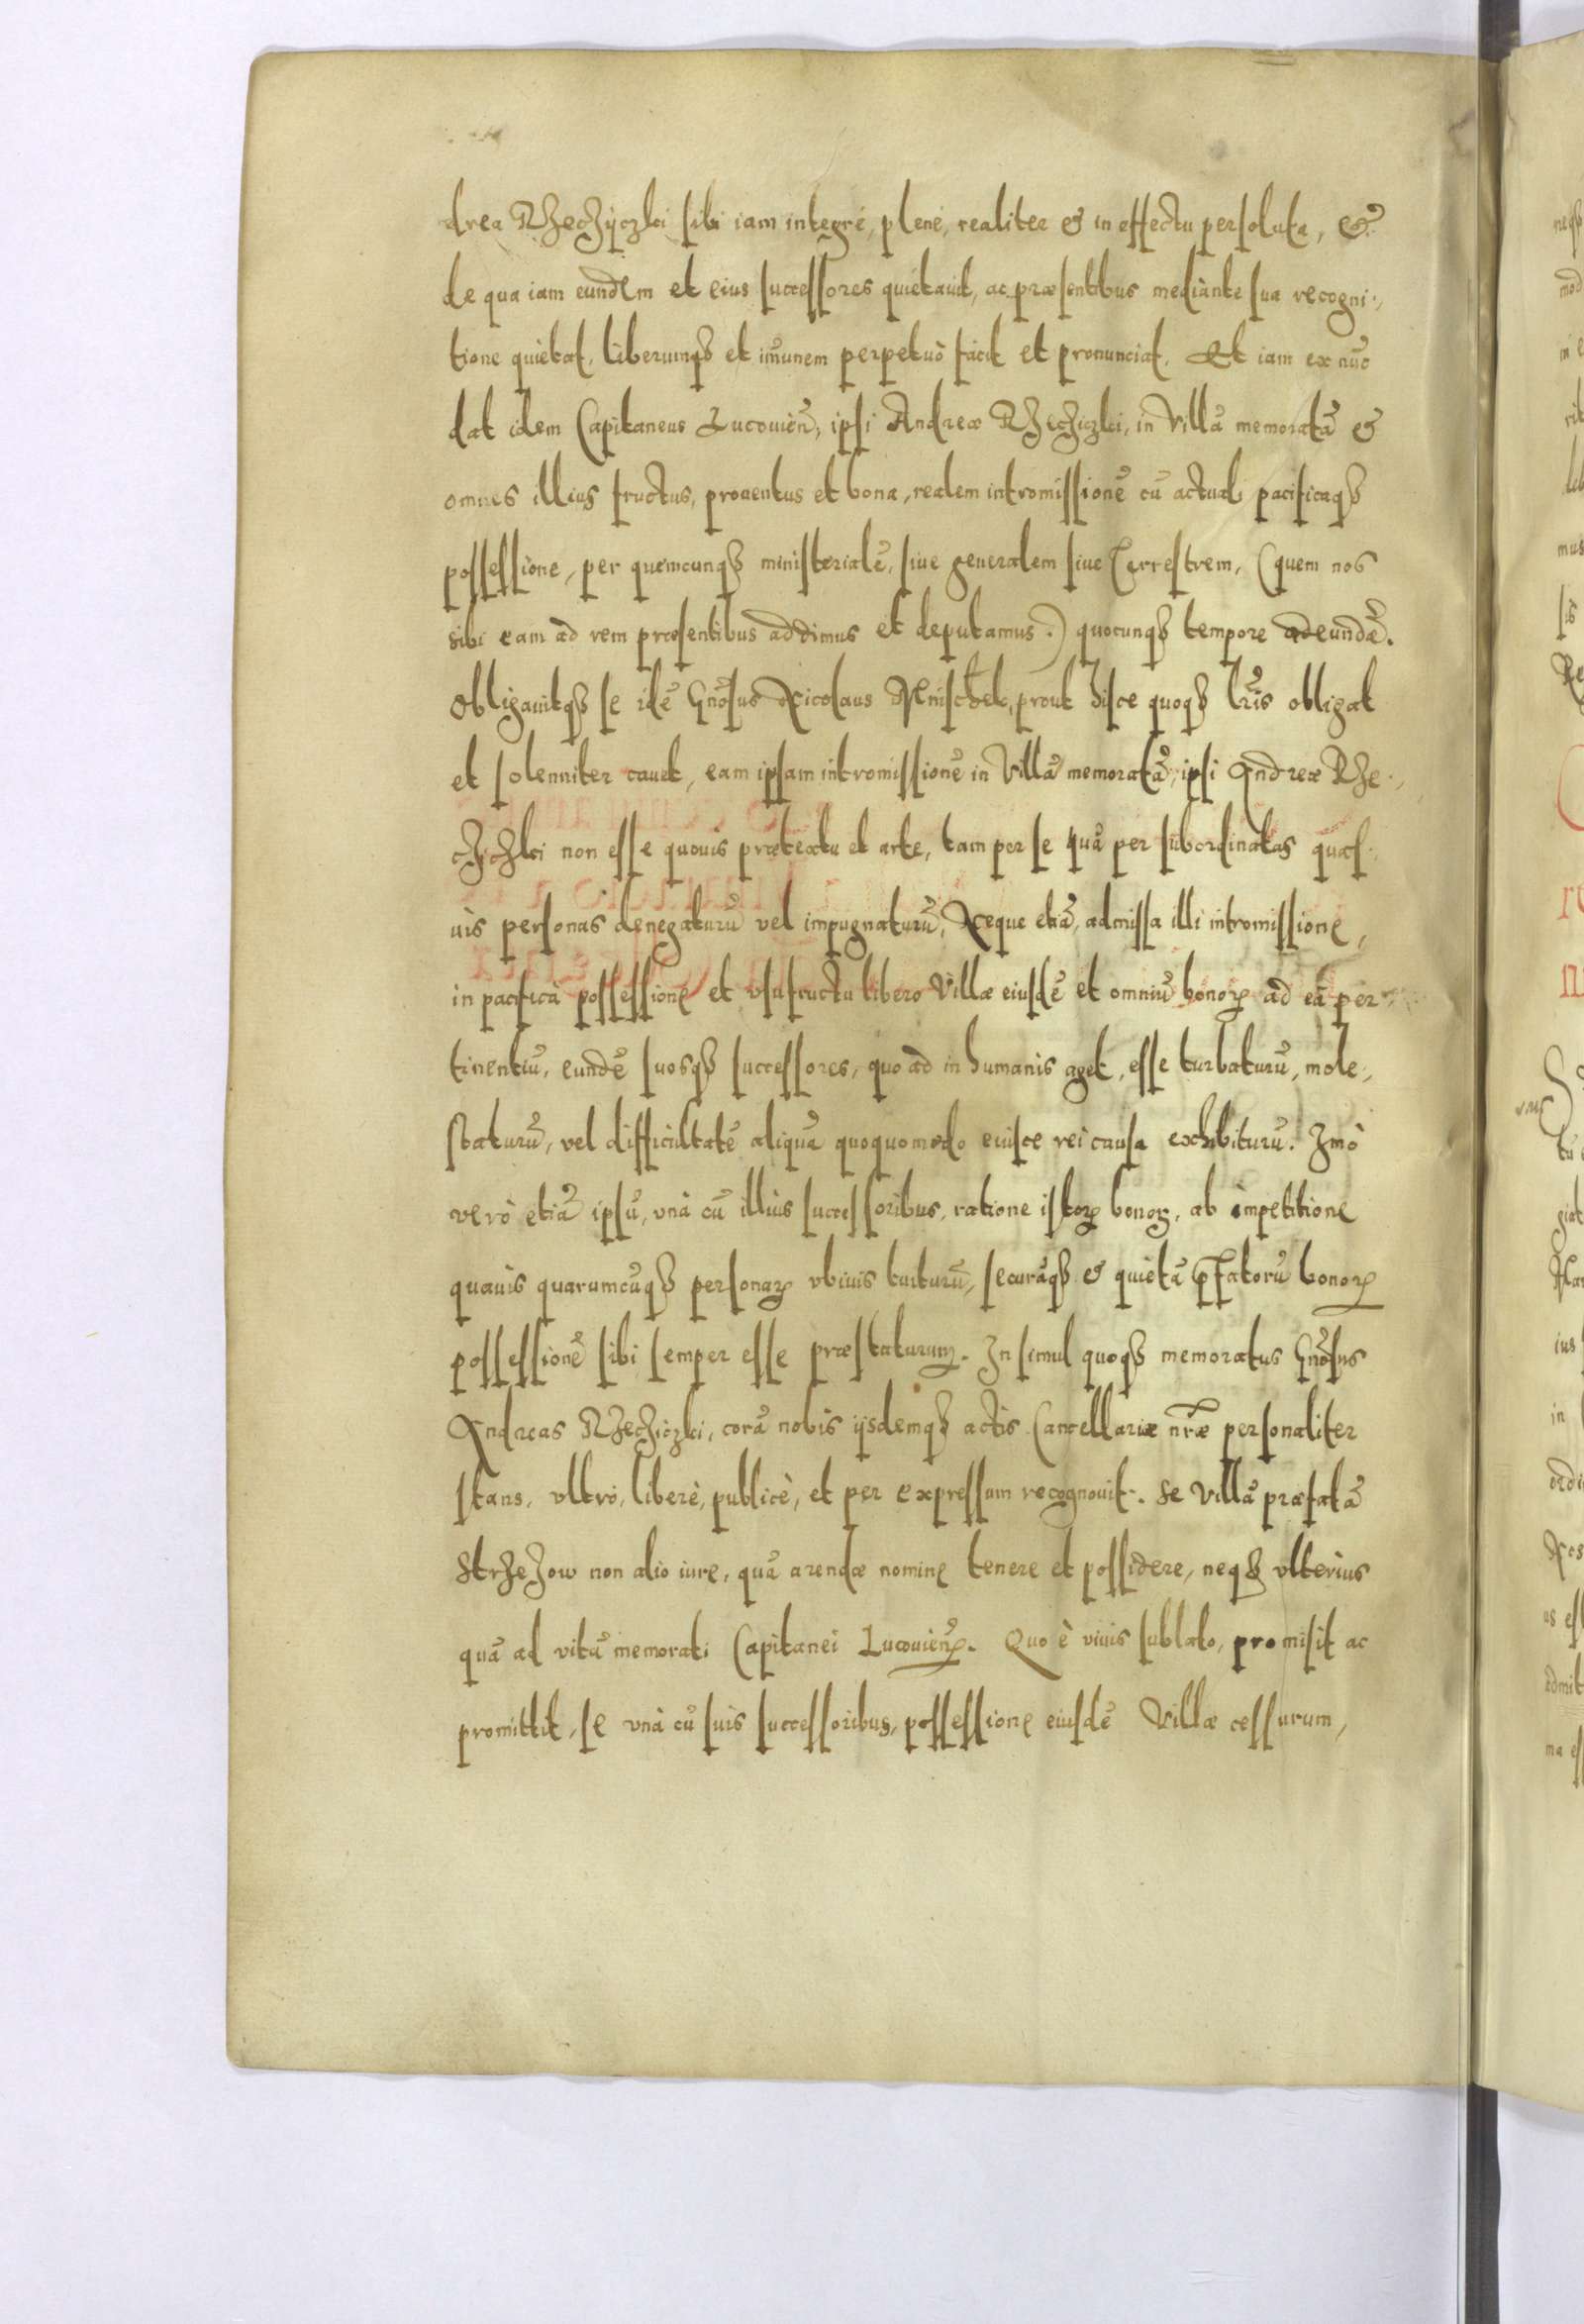 drea Rzechÿczki sibi iam integré, plené, realiter & in effectu persoluta, &
de qua iam eundem et eius successores quietauit, ac præsentibus mediante sua recogni-,
tione quietat, liberumqȝ et im̃unem perpetuò facit et pronunciat. Et iam ex nũc
dat idem Capitaneus Lucouieñ, ipsi Andreæ Rzechiczki, in Villã memoratã &
omnes illius fructus, prouentus et bona, realem intromissionẽ cũ actuali pacificaqȝ
possessione, per quemcunqȝ ministerialẽ, siue generalem siue Terrestrem, (quem nos
sibi eam ad rem præsentibus addimus et deputamus.) quocunqȝ tempore adeundã.
Obligauitqȝ se idẽ Gnõsus Nicolaus Mnischek, prout hisce quoqȝ lr̃is obligat
et solenniter cauet, eam ipsam intromissionẽ in Villã memoratã, ipsi Andreæ Rze-,
chiczki non esse quouis prætextu et arte, tam per se quã per subordinatas quas-,
uis personas denegaturũ vel impugnaturũ, Neque etiã, admissa illi intromissione,
in pacificà possessione et vsufructu libero Villæ eiusdẽ et omniũ bonoꝝ ad eã per-
tinentiũ, eundẽ suosqȝ successores, quo ad in humanis aget, esse turbaturũ, mole-,
staturũ, vel difficultatẽ aliquã quoquomodo eiusce rei causa exhibiturũ. Imò
verò etiã ipsũ, vnà cũ illius successoribus, ratione istoꝝ bonoꝝ, ab impetitione
quauis quarumcũqȝ personaꝝ vbiuis tuiturũ, securãqȝ & quietã p̃fatorũ bonoꝝ
possessionẽ sibi semper esse præstaturum. In simul quoqȝ memoratus Gnõsus
Andreas Rzechiczki, corã nobis ijsdemqȝ actis Cancellariæ nr̃æ personaliter
stans, vltrò, liberè, publicè, et per expressum recognouit. Se villã præfatã
Strzezow non alio iure, quã arendæ nomine tenere et possidere, neqȝ vlterius
quã ad vitã memorati Capitanei Lucouieñ. Quo è viuis sublato, promisit ac
promittit, se vnà cũ suis successoribus, possessione eiusdẽ Villæ cessurum,